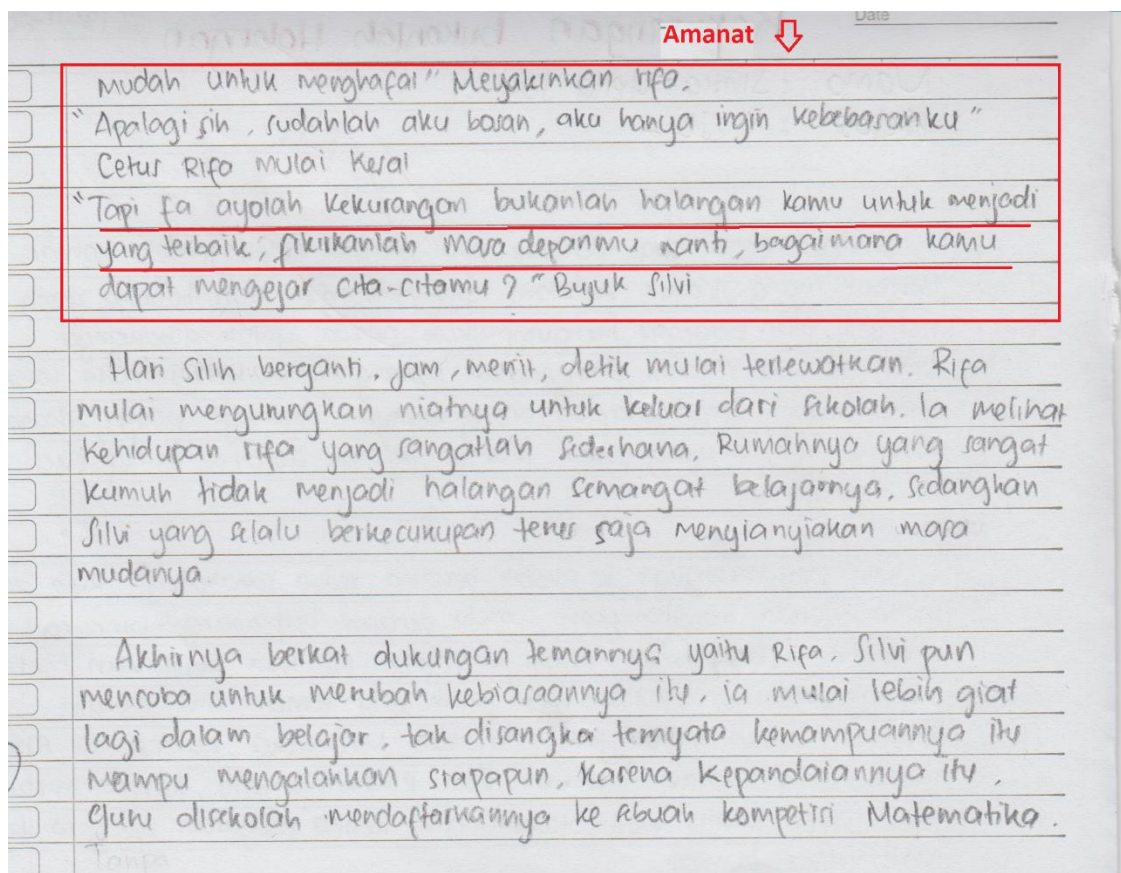 Date
Amanat
mudah untuk menghafal" Meyakinkan rifa.
"Apalagi sih, sudahlah aku bosan, aku hanya ingin kebebasanku"
Cetus Rifa mulai kesal
"Tapi fa ayolah kekurangan bukanlah halangan kamu untuk menjadi
yang terbaik, fikirkanlah masa depanmu nanti, bagaimana kamu
dapat mengejar cita-citamu?" Bujuk Silvi
Hari silih berganti, jam, menit, detik mulai terlewatkan. Rifa
mulai mengurungkan niatnya untuk keluar dari sekolah. Ia melihat
kehidupan rifa yang sangatlah sederhana, Rumahnya yang sangat
kumuh tidak menjadi halangan semangat belajarnya, sedangkan
Silvi yang selalu berkecukupan terus saja menyianyiakan masa
mudanya
Akhirnya berkat dukungan temannya yaitu Rifa, Silvi pun
mencoba untuk merubah kebiasaannya itu, ia mulai lebih giat
lagi dalam belajar, tak disangka ternyata kemampuannya itu
mampu mengalahkan siapapun, karena kepandaiannya itu,
guru disekolah mendaftarkannya ke sebuah kompetisi Matematika.